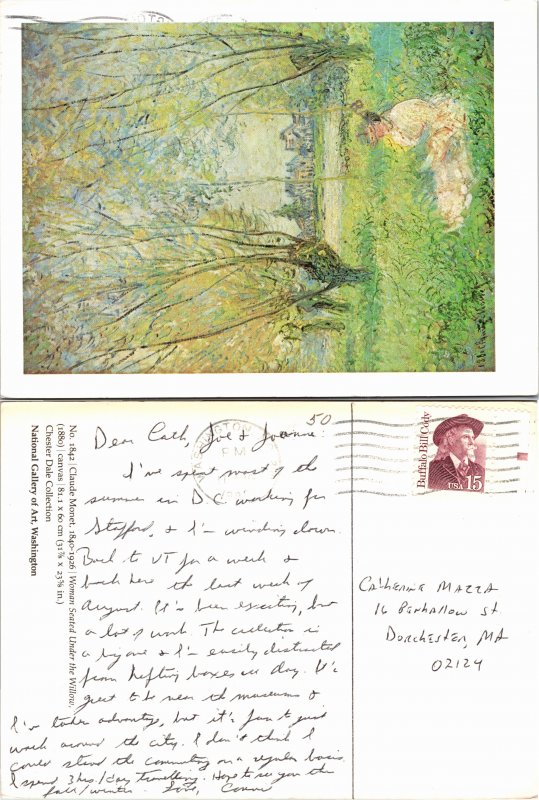 50
Dear Cath, Joe & Joanne:
I've spent most of the
summer in DC working for
Stafford, & I'm winding down.
Back to VT for a week &
back here the last week of
August. It's been exciting, but
a lot of work. The collection is
a big one & I'm easily distracted
from hefting boxes all day. It's
great to be near the museums &
I've taken advantage, but it's fun to just
walk around the city. I don't think I
could stand the commuting on a regular basis.
I spend 3 hrs./day travelling. Hope to see you this
fall/winter. Love, Connie
No. 1842 | Claude Monet, 1840-1926 | Woman Seated Under the Willow,
(1880) | canvas | 81.1 x 60 cm (31⅞ x 23⅝ in.)
Chester Dale Collection
National Gallery of Art, Washington
WASHINGTON
PM
Buffalo Bill Cody
USA 15
Catherine Mazza
16 Penhallow St
Dorchester, MA
02124